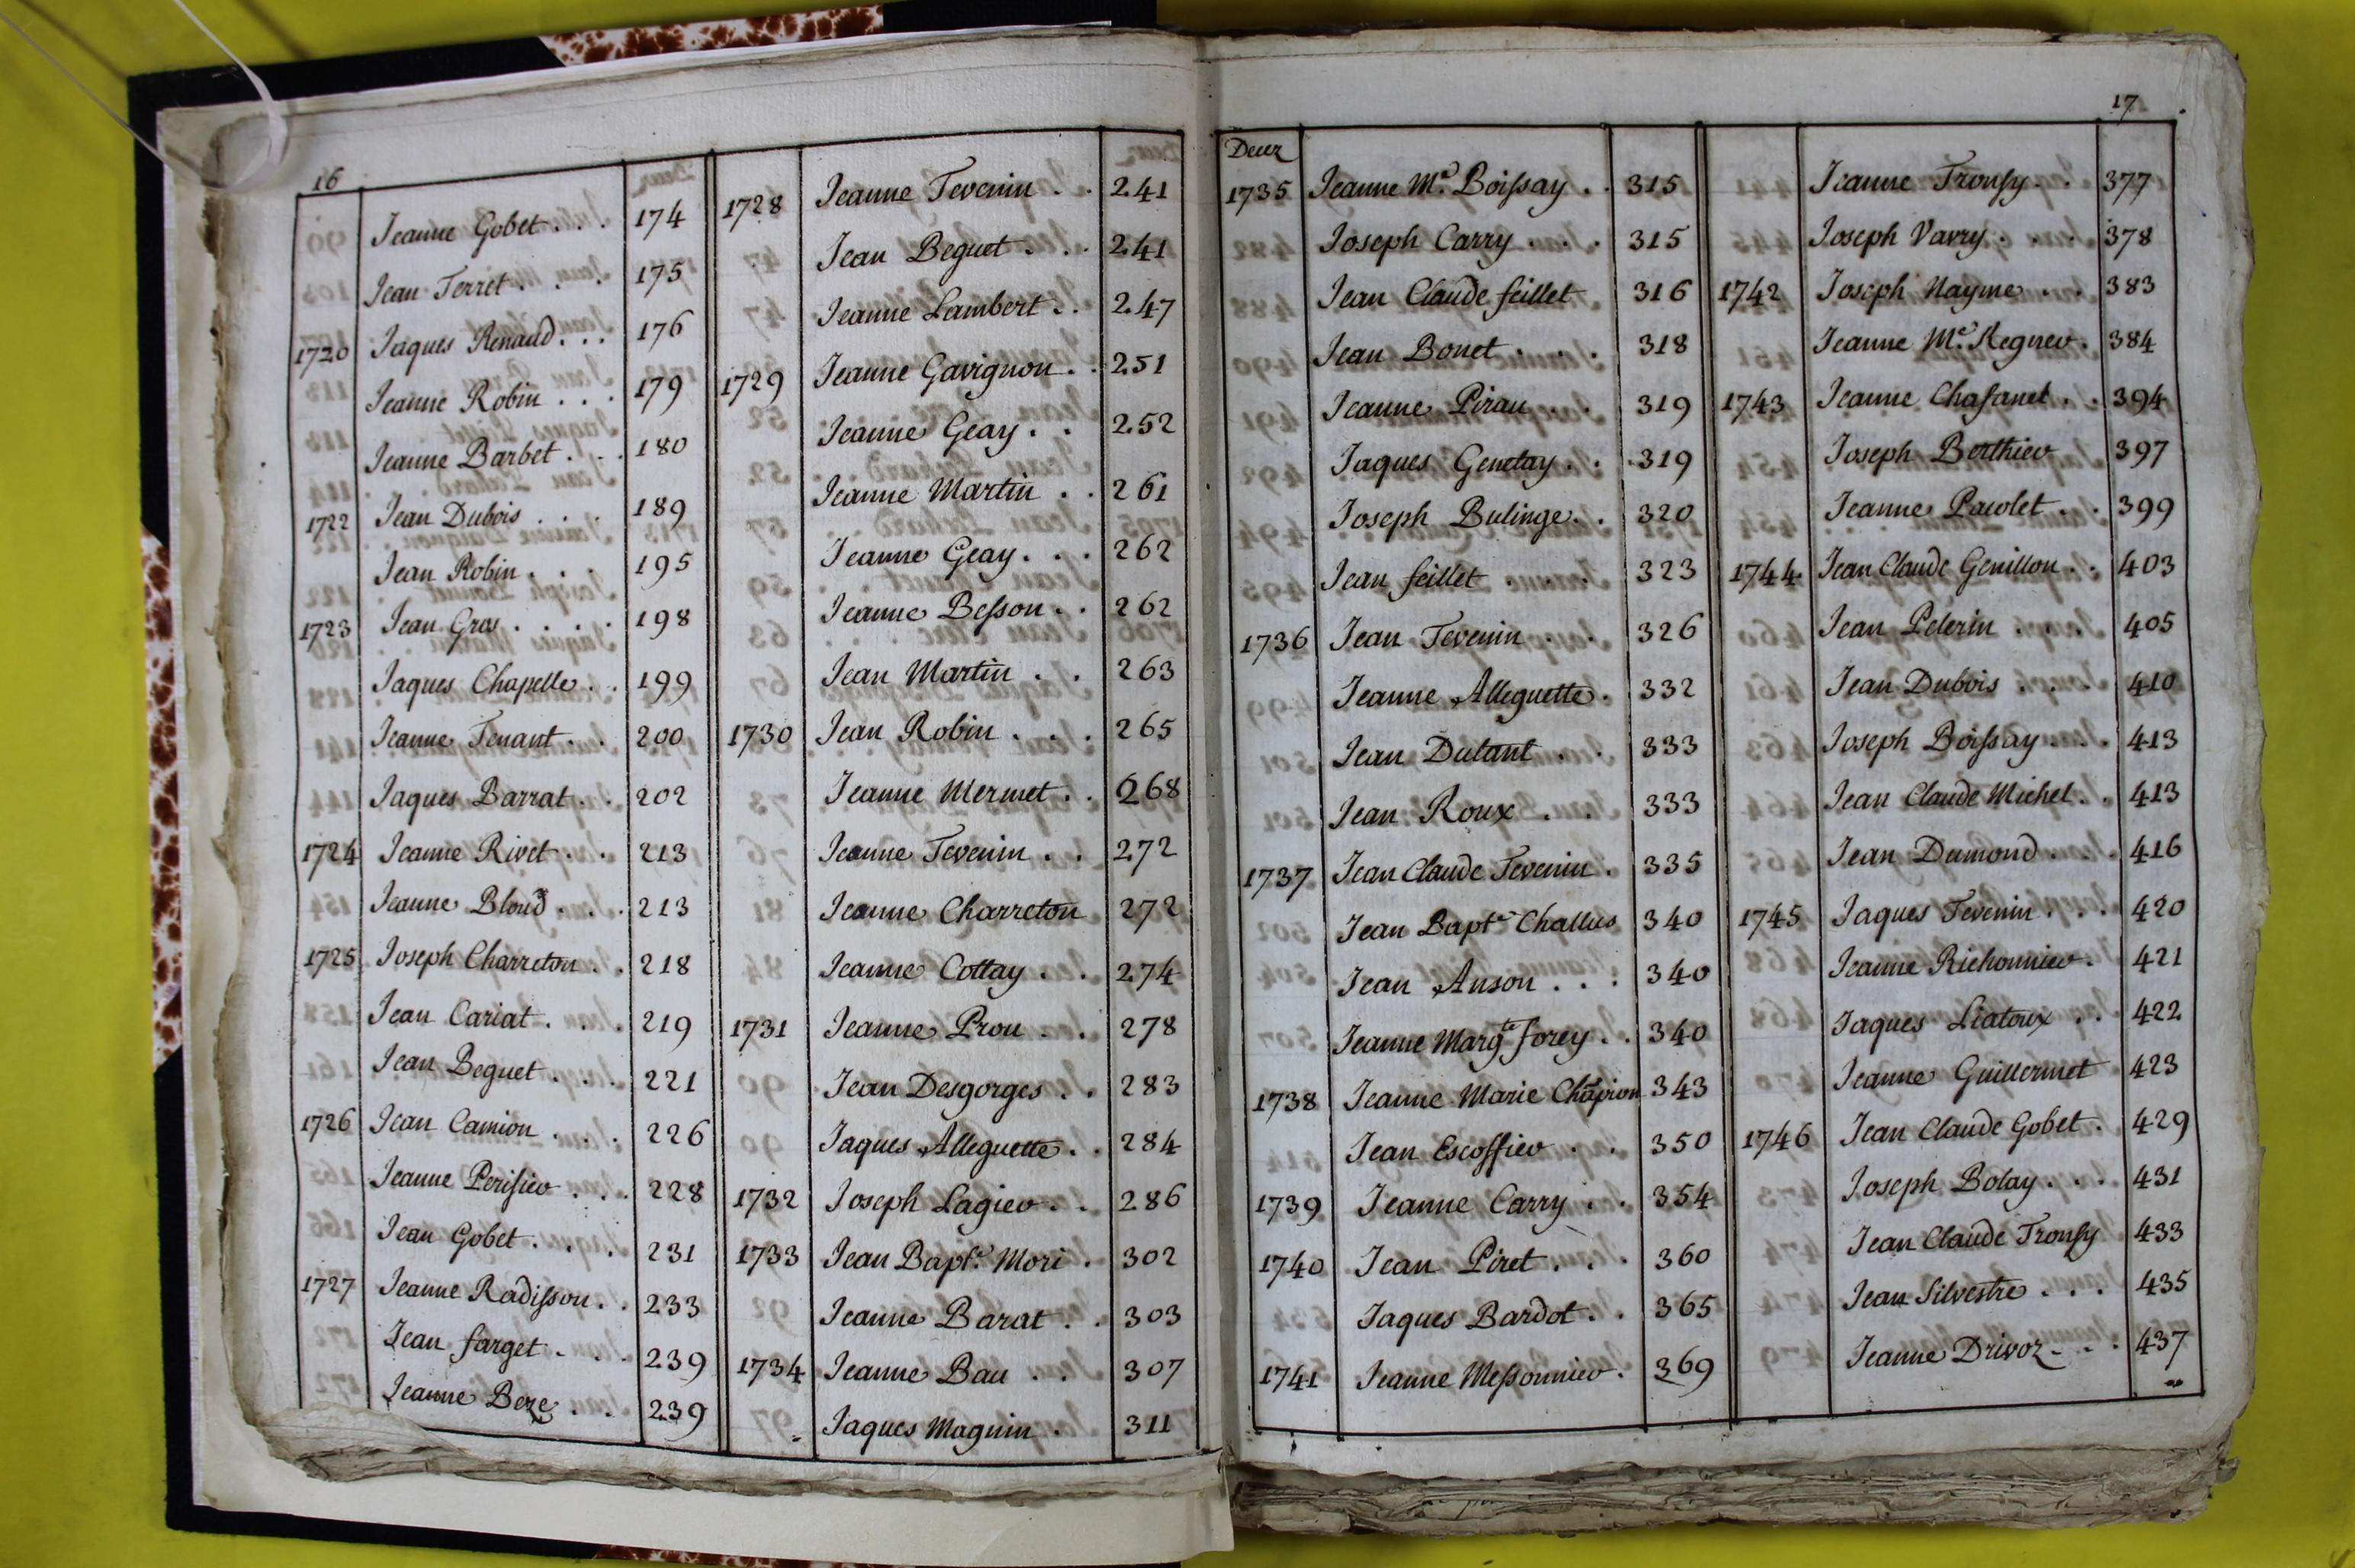 16
Jeanne Gobet . . . 174
Jean Terret . . . 175
1720 Jaques Renaud . . . 176
Jeanne Robin . . . 179
Jeanne Barbet . . . 180
1722 Jean Dubois . . . 189
Jean Robin . . . 195
1723 Jean Gros . . . . 198
Jaques Chapelle . . 199
Jeanne Tenant . . 200
Jaques Barrat . . 202
1724 Jeanne Rivet . . 213
Jeanne Bloud . . . 213
1725 Joseph Charreton . . 218
Jean Cariat . . . 219
Jean Beguet . . . 221
1726 Jean Camion . . . 226
Jeanne Perisier . . . 228
Jean Gobet . . . 231
1727 Jeanne Radisson . . 233
Jean farget . . . 239
Jeanne Beze . . 239
1728 Jeanne Tevenin . . 241
Jean Beguet . . . 241
Jeanne Lambert . . 247
1729 Jeanne Gavignon . . 251
Jeanne Geay . . 252
Jeanne Martin . . 261
Jeanne Geay . . . 262
Jeanne Besson . . 262
Jean Martin . . 263
1730 Jean Robin . . . 265
Jeanne Mermet . . 268
Jeanne Tevenin . . 272
Jeanne Charreton 272
Jeanne Cottay . . 274
1731 Jeanne Pron . . 278
Jean Desgorges . . 283
Jaques Alleguette . . 284
1732 Joseph Lagier . . 286
1733 Jean Bapt.e Mori . 302
Jeanne Barat . . 303
1734 Jeanne Bau . . 307
Jaques Magnin . 311
17
Deuz
1735 Jeanne M.e Boissay . . 315
Joseph Carry . . . 315
Jean Claude feillet 316
Jean Bonet . . . 318
Jeanne Pirau . . 319
Jaques Genetay . . 319
Joseph Bulinge . . 320
Jean feillet . . . 323
1736 Jean Tevenin . . 326
Jeanne Alleguette . 332
Jean Dutant . . 333
Jean Roux . . 333
1737 Jean Claude Tevenin . 335
Jean Bapt.e Challus 340
Jean Anson . . . 340
Jeanne Marg.te forey . . 340
1738 Jeanne Marie Chāpion 343
Jean Escoffier . . 350
1739 Jeanne Carry . . 354
1740 Jean Piret . . . 360
Jaques Bardot . . 365
1741 Jeanne Messonnier . 369
Jeanne Tronsy . . 377
Joseph Varry . . . 378
1742 Joseph Nayme . . 383
Jeanne M.e Regner . 384
1743 Jeanne Chasanet . . 394
Joseph Berthier 397
Jeanne Pacolet . . 399
1744 Jean Claude Genillon . . 403
Jean Pelerin . . . 405
Jean Dubois . . . 410
Joseph Boissay . . . 413
Jean Claude Michel . . 413
Jean Dumond . . . 416
1745 Jaques Tevenin . . . 420
Jeanne Richonnier . 421
Jaques Liatoux . . 422
Jeanne Guillermet 423
1746 Jean Claude Gobet . 429
Joseph Bolay . . . 431
Jean Claude Tronsy 433
Jean Silvestre . . . 435
Jeanne Drivoz . . . 437